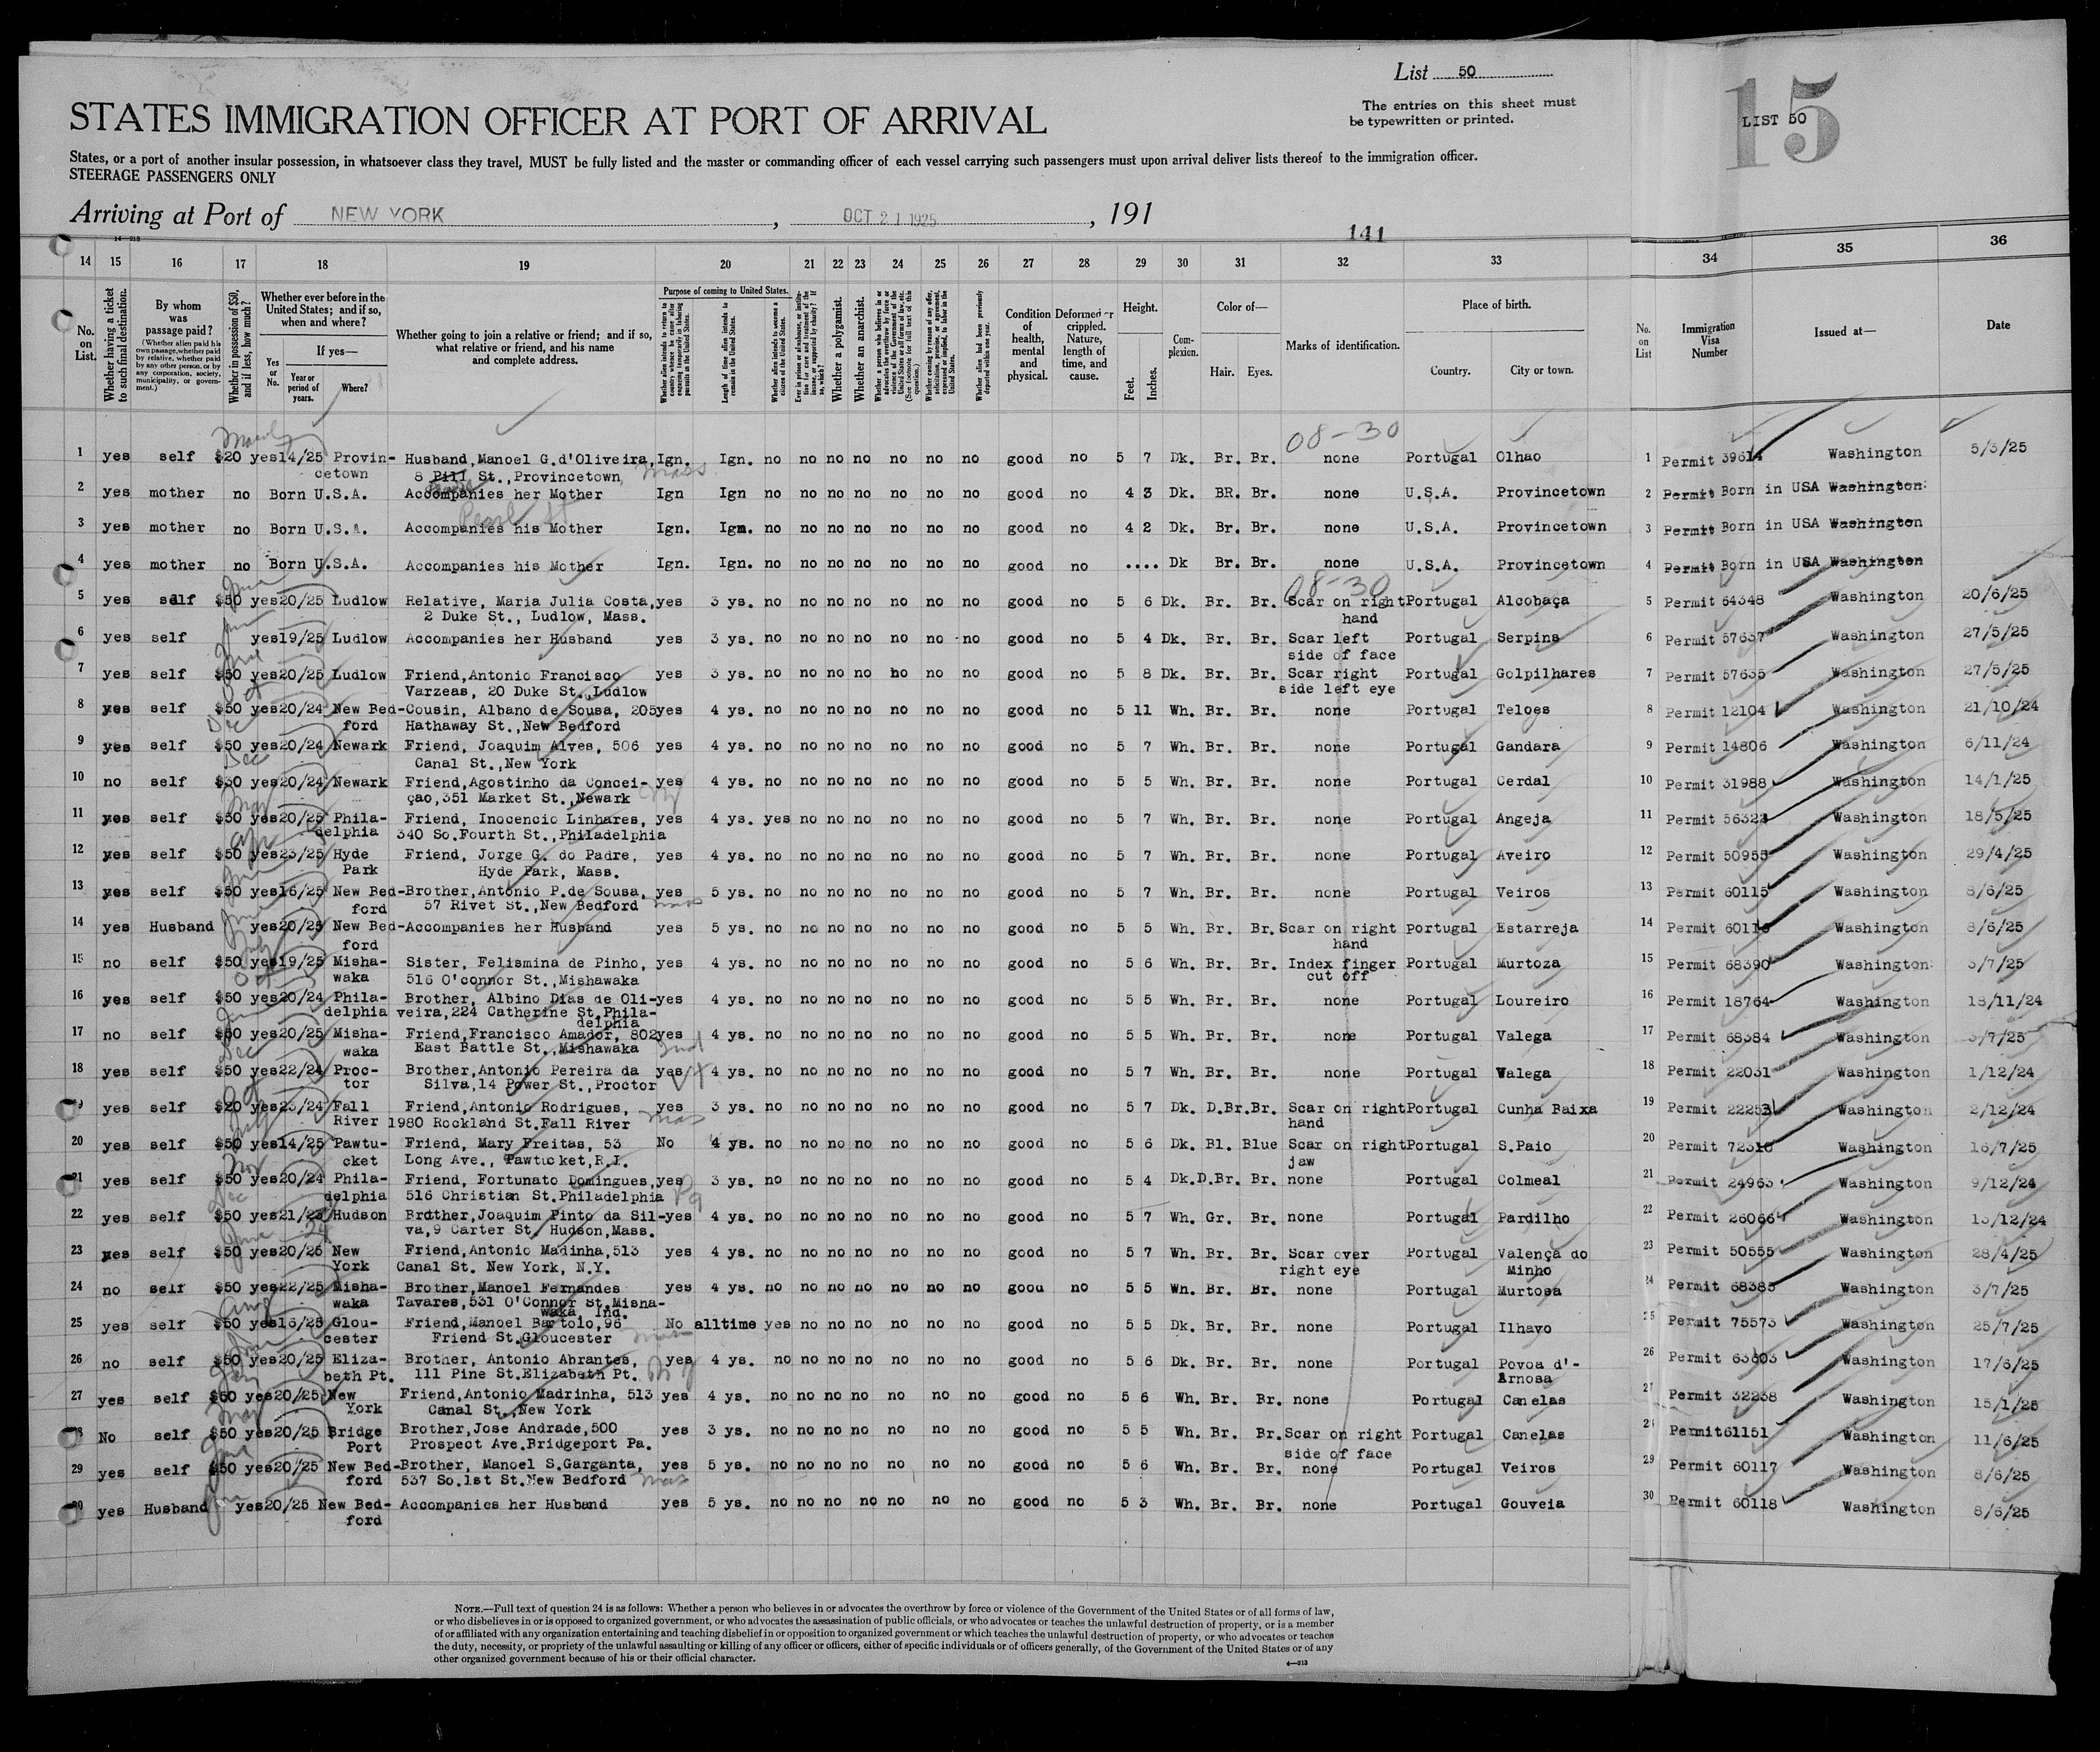 List 50
The entries on this sheet must
be typewritten or printed.
LIST 50
15
STATES IMMIGRATION OFFICER AT PORT OF ARRIVAL
States, or a port of another insular possession, in whatsoever class they travel, MUST be fully listed and the master or commanding officer of each vessel carrying such passengers must upon arrival deliver lists thereof to the immigration officer.
STEERAGE PASSENGERS ONLY
Arriving at Port of NEW YORK, OCT 21 1925, 191
141
14 15 16 17 18 19 20 21 22 23 24 25 26 27 28 29 30 31 32 33 34 35 36
No. on List.
Whether having a ticket to such final destination.
By whom was passage paid?
(Whether alien paid his own passage, whether paid by relative, whether paid by any other person, or by any corporation, society, municipality, or government.)
Whether in possession of $50, and if less, how much?
Whether ever before in the United States; and if so, when and where?
Yes or No.
If yes—
Year or period of years.
Where?
Whether going to join a relative or friend; and if so, what relative or friend, and his name and complete address.
Purpose of coming to United States.
Length of time alien intends to remain in the United States.
Whether alien intends to become a citizen of the United States.
Whether a polygamist.
Whether an anarchist.
Condition of health, mental and physical.
Deformed or crippled. Nature, length of time, and cause.
Height.
Feet. Inches.
Complexion.
Color of—
Hair. Eyes.
Marks of identification.
Place of birth.
Country. City or town.
No. on List
Immigration Visa Number
Issued at—
Date
08-30
1 yes self $20 yes 14/25 Provin- Husband, Manoel G. d'Oliveira, Ign. Ign. no no no no no no no good no 5 7 Dk. Br. Br. none Portugal Olhao 1 Permit 39614 Washington 5/3/25
cetown 8 Pill St., Provincetown, Mass
2 yes mother no Born U.S.A. Accompanies her Mother Ign Ign no no no no no no no good no 4 3 Dk. BR. Br. none U.S.A. Provincetown 2 Permit Born in USA Washington
Pearl St
3 yes mother no Born U.S.A. Accompanies his Mother Ign. Ign. no no no no no no no good no 4 2 Dk. Br. Br. none U.S.A. Provincetown 3 Permit Born in USA Washington
4 yes mother no Born U.S.A. Accompanies his Mother Ign. Ign. no no no no no no no good no .... Dk Br. Br. none U.S.A. Provincetown 4 Permit Born in USA Washington
08-30
5 yes self $50 yes 20/25 Ludlow Relative, Maria Julia Costa, yes 3 ys. no no no no no no no good no 5 6 Dk. Br. Br. Scar on right Portugal Alcobaça 5 Permit 64348 Washington 20/6/25
2 Duke St., Ludlow, Mass. hand
6 yes self yes 19/25 Ludlow Accompanies her Husband yes 3 ys. no no no no no no no good no 5 4 Dk. Br. Br. Scar left Portugal Serpins 6 Permit 57637 Washington 27/5/25
side of face
7 yes self $50 yes 20/25 Ludlow Friend, Antonio Francisco yes 3 ys. no no no no ho no no good no 5 8 Dk. Br. Br. Scar right Portugal Golpilhares 7 Permit 57635 Washington 27/5/25
Varzeas, 20 Duke St., Ludlow side left eye
8 yes self $50 yes 20/24 New Bed- Cousin, Albano de Sousa, 205 yes 4 ys. no no no no no no no good no 5 11 Wh. Br. Br. none Portugal Teloes 8 Permit 12104 Washington 21/10/24
ford Hathaway St., New Bedford
9 yes self $50 yes 20/24 Newark Friend, Joaquim Alves, 506 yes 4 ys. no no no no no no no good no 5 7 Wh. Br. Br. none Portugal Gandara 9 Permit 14806 Washington 6/11/24
Canal St., New York
10 no self $30 yes 20/24 Newark Friend, Agostinho da Concei- yes 4 ys. no no no no no no no good no 5 5 Wh. Br. Br. none Portugal Cerdal 10 Permit 31988 Washington 14/1/25
çao, 351 Market St., Newark
11 yes self $50 yes 20/25 Phila- Friend, Inocencio Linhares, yes 4 ys. yes no no no no no no good no 5 7 Wh. Br. Br. none Portugal Angeja 11 Permit 56323 Washington 18/5/25
delphia 340 So. Fourth St., Philadelphia
12 yes self $50 yes 23/25 Hyde Friend, Jorge G. do Padre, yes 4 ys. no no no no no no no good no 5 7 Wh. Br. Br. none Portugal Aveiro 12 Permit 50955 Washington 29/4/25
Park Hyde Park, Mass.
13 yes self $50 yes 16/25 New Bed- Brother, Antonio P. de Sousa, yes 5 ys. no no no no no no no good no 5 7 Wh. Br. Br. none Portugal Veiros 13 Permit 60115 Washington 8/6/25
ford 57 Rivet St., New Bedford Mass
14 yes Husband yes 20/25 New Bed- Accompanies her Husband yes 5 ys. no no no no no no no good no 5 5 Wh. Br. Br. Scar on right Portugal Estarreja 14 Permit 60116 Washington 8/6/25
ford hand
15 no self $50 yes 19/25 Misha- Sister, Felismina de Pinho, yes 4 ys. no no no no no no no good no 5 6 Wh. Br. Br. Index finger Portugal Murtoza 15 Permit 68390 Washington 3/7/25
waka 516 O'connor St., Mishawaka cut off
16 yes self $50 yes 20/24 Phila- Brother, Albino Dias de Oli- yes 4 ys. no no no no no no no good no 5 5 Wh. Br. Br. none Portugal Loureiro 16 Permit 18764 Washington 18/11/24
delphia veira, 224 Catherine St, Phila-
delphia
17 no self $50 yes 20/25 Misha- Friend, Francisco Amador, 802 yes 4 ys. no no no no no no no good no 5 5 Wh. Br. Br. none Portugal Valega 17 Permit 68384 Washington 3/7/25
waka East Battle St., Mishawaka Ind
18 yes self $50 yes 22/24 Proc- Brother, Antonio Pereira da yes 4 ys. no no no no no no no good no 5 7 Wh. Br. Br. none Portugal Valega 18 Permit 22031 Washington 1/12/24
tor Silva, 14 Power St., Proctor Vt
19 yes self $20 yes 23/24 Fall Friend, Antonio Rodrigues, yes 3 ys. no no no no no no no good no 5 7 Dk. D.Br. Br. Scar on right Portugal Cunha Baixa 19 Permit 22253 Washington 2/12/24
River 1980 Rockland St. Fall River Mas hand
20 yes self $50 yes 14/25 Pawtu- Friend, Mary Freitas, 53 No 4 ys. no no no no no no no good no 5 6 Dk. Bl. Blue Scar on right Portugal S. Paio 20 Permit 72310 Washington 16/7/25
cket Long Ave., Pawtucket, R.I. jaw
21 yes self $50 yes 20/24 Phila- Friend, Fortunato Domingues, yes 3 ys. no no no no no no no good no 5 4 Dk. D.Br. Br. none Portugal Colmeal 21 Permit 24963 Washington 9/12/24
delphia 516 Christian St. Philadelphia Pa
22 yes self $50 yes 21/23 Hudson Brother, Joaquim Pinto da Sil- yes 4 ys. no no no no no no no good no 5 7 Wh. Gr. Br. none Portugal Pardilho 22 Permit 26066 Washington 13/12/24
va, 9 Carter St. Hudson, Mass.
23 yes self $50 yes 20/25 New Friend, Antonio Madinha, 513 yes 4 ys. no no no no no no no good no 5 7 Wh. Br. Br. Scar over Portugal Valença do 23 Permit 50555 Washington 28/4/25
York Canal St. New York, N.Y. right eye Minho
24 no self $50 yes 22/25 Misha- Brother, Manoel Fernandes yes 4 ys. no no no no no no no good no 5 5 Wh. Br. Br. none Portugal Murtosa 24 Permit 68385 Washington 3/7/25
waka Tavares, 531 O'Connor St. Misha-
waka, Ind.
25 yes self $50 yes 16/25 Glou- Friend, Manoel Bartolo, 96 No alltime yes no no no no no no good no 5 5 Dk. Br. Br. none Portugal Ilhavo 25 Permit 75573 Washington 25/7/25
cester Friend St. Gloucester
26 no self $50 yes 20/25 Eliza- Brother, Antonio Abrantes, yes 4 ys. no no no no no no no good no 5 6 Dk. Br. Br. none Portugal Povoa d'- 26 Permit 63603 Washington 17/6/25
beth Pt. 111 Pine St. Elizabeth Pt. N J Arnosa
27 yes self $50 yes 20/25 New Friend, Antonio Madrinha, 513 yes 4 ys. no no no no no no no good no 5 6 Wh. Br. Br. none Portugal Canelas 27 Permit 32238 Washington 15/1/25
York Canal St., New York
28 No self $50 yes 20/25 Bridge Brother, Jose Andrade, 500 yes 3 ys. no no no no no no no good no 5 5 Wh. Br. Br. Scar on right Portugal Canelas 28 Permit 61151 Washington 11/6/25
Port Prospect Ave. Bridgeport Pa. side of face
29 yes self $50 yes 20/25 New Bed- Brother, Manoel S. Garganta, yes 5 ys. no no no no no no no good no 5 6 Wh. Br. Br. none Portugal Veiros 29 Permit 60117 Washington 8/6/25
ford 537 So. 1st St. New Bedford Mas
30 yes Husband yes 20/25 New Bed- Accompanies her Husband yes 5 ys. no no no no no no no good no 5 3 Wh. Br. Br. none Portugal Gouveia 30 Permit 60118 Washington 8/6/25
ford
NOTE.—Full text of question 24 is as follows: Whether a person who believes in or advocates the overthrow by force or violence of the Government of the United States or of all forms of law,
or who disbelieves in or is opposed to organized government, or who advocates the assassination of public officials, or who advocates or teaches the unlawful destruction of property, or is a member
of or affiliated with any organization entertaining and teaching disbelief in or opposition to organized government or which teaches the unlawful destruction of property, or who advocates or teaches
the duty, necessity, or propriety of the unlawful assaulting or killing of any officer or officers, either of specific individuals or of officers generally, of the Government of the United States or of any
other organized government because of his or their official character.